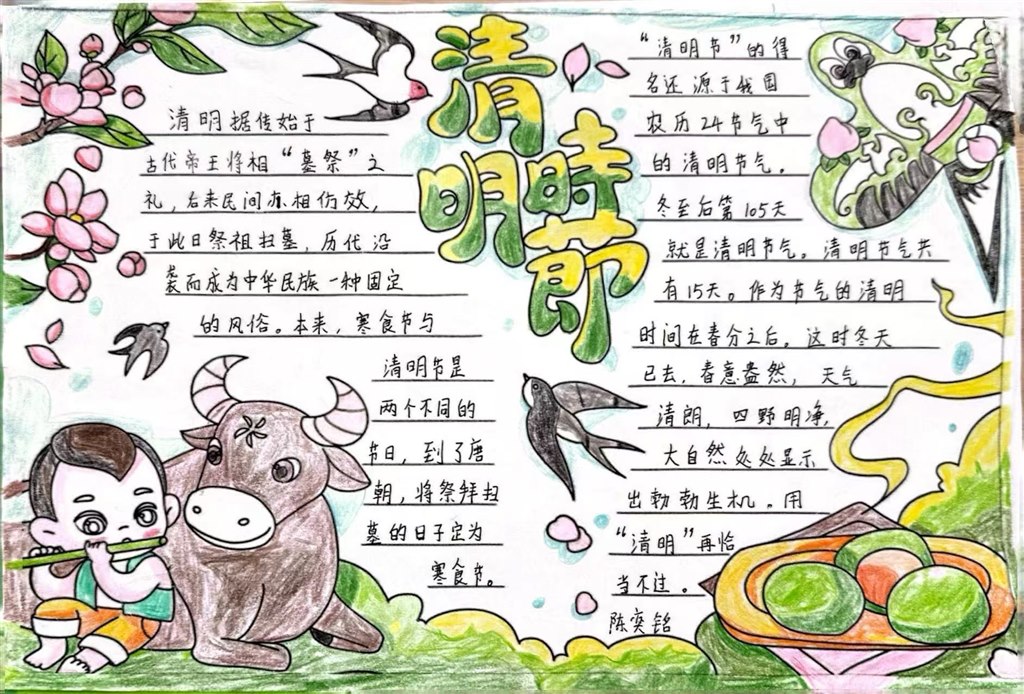 清明時節
清明据传始于
古代帝王将相“墓祭”之
礼，后来民间亦相仿效，
于此日祭祖扫墓，历代沿
袭而成为中华民族一种固定
的风俗。本来，寒食节与
清明节是
两个不同的
节日，到了唐
朝，将祭拜扫
墓的日子定为
寒食节。
“清明节”的得
名还源于我国
农历24节气中
的清明节气。
冬至后第105天
就是清明节气。清明节气共
有15天。作为节气的清明
时间在春分之后，这时冬天
已去，春意盎然，天气
清朗，四野明净，
大自然处处显示
出勃勃生机。用
“清明”再恰
当不过。
陈奕铭